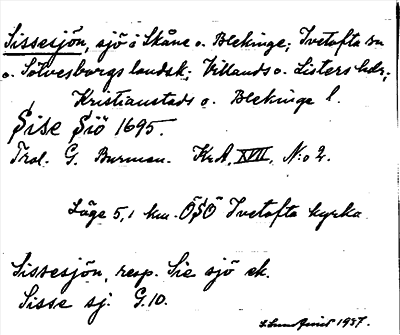 Sissesjön, sjö i Skåne o. Blekinge; Ivetofta sn
o. Sölvesborgs landsk.; Villands o. Listers hdr;
Kristianstads o. Blekinge l.
Sise Siö 1695.
Trol. G. Burman. KrA, XVII, N:o 2.
Läge 5,1 km. ÖSÖ Ivetofta kyrka.
Sissesjön, resp. Sie sjö ek.
Sisse sj. G.10.
1937.